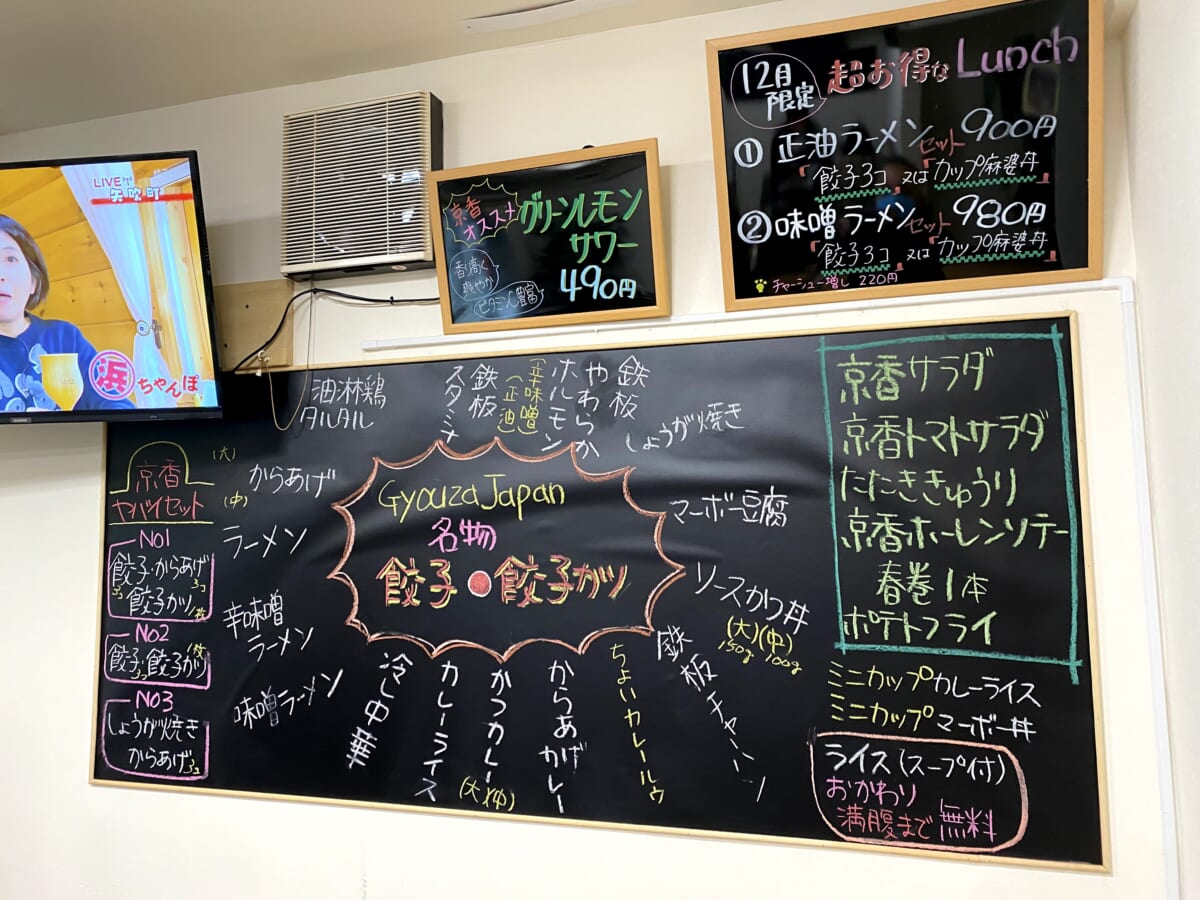 LIVE
矢吹町
浜ちゃんぽ
京香
オススメ
グリーンレモン
サワー
490円
香高く
爽やか
ビタミン豊富
12月
限定
超お得なLunch
① 正油ラーメンセット 900円
「餃子3コ」又は「カップ麻婆丼」
② 味噌ラーメンセット 980円
「餃子3コ」又は「カップ麻婆丼」
チャーシュー増し 220円
京香
ヤバイセット
No1
餃子・からあげ
3コ 3コ
餃子カツ1枚
No2
餃子・餃子カツ
No3
しょうが焼き
からあげ3コ
(大)
(中)
からあげ
ラーメン
辛味噌
ラーメン
味噌ラーメン
油淋鶏
タルタル
鉄板
スタミナ
ホルモン
(辛味噌)
(正油)
鉄板
やわらか
しょうが焼き
マーボー豆腐
ソースかつ丼
(大)(中)
150g 100g
鉄板チャーハン
ちょいカレールウ
からあげカレー
かつカレー
(大)(中)
カレーライス
冷し中華
Gyouza Japan
名物
餃子●餃子カツ
京香サラダ
京香トマトサラダ
たたききゅうり
京香ホーレンソテー
春巻1本
ポテトフライ
ミニカップカレーライス
ミニカップマーボー丼
ライス(スープ付)
おかわり
満腹まで無料